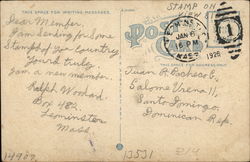 THIS SPACE FOR WRITING MESSAGES
Dear Member,
I am Sending for Some
Stamps of your Country
Yours truly,
I am a new member.
Ralph Woodard
Box 482.
Leominster
Mass.
STAMP ON
VIEW
LEOMINSTER
JAN 6
6 PM
MASS.
1926
1
THIS SPACE FOR ADDRESS ONLY
Juan R. Pacheco G.
Salome Urena 11,
Santo Domingo,
Dominican Rep.
14907
13531